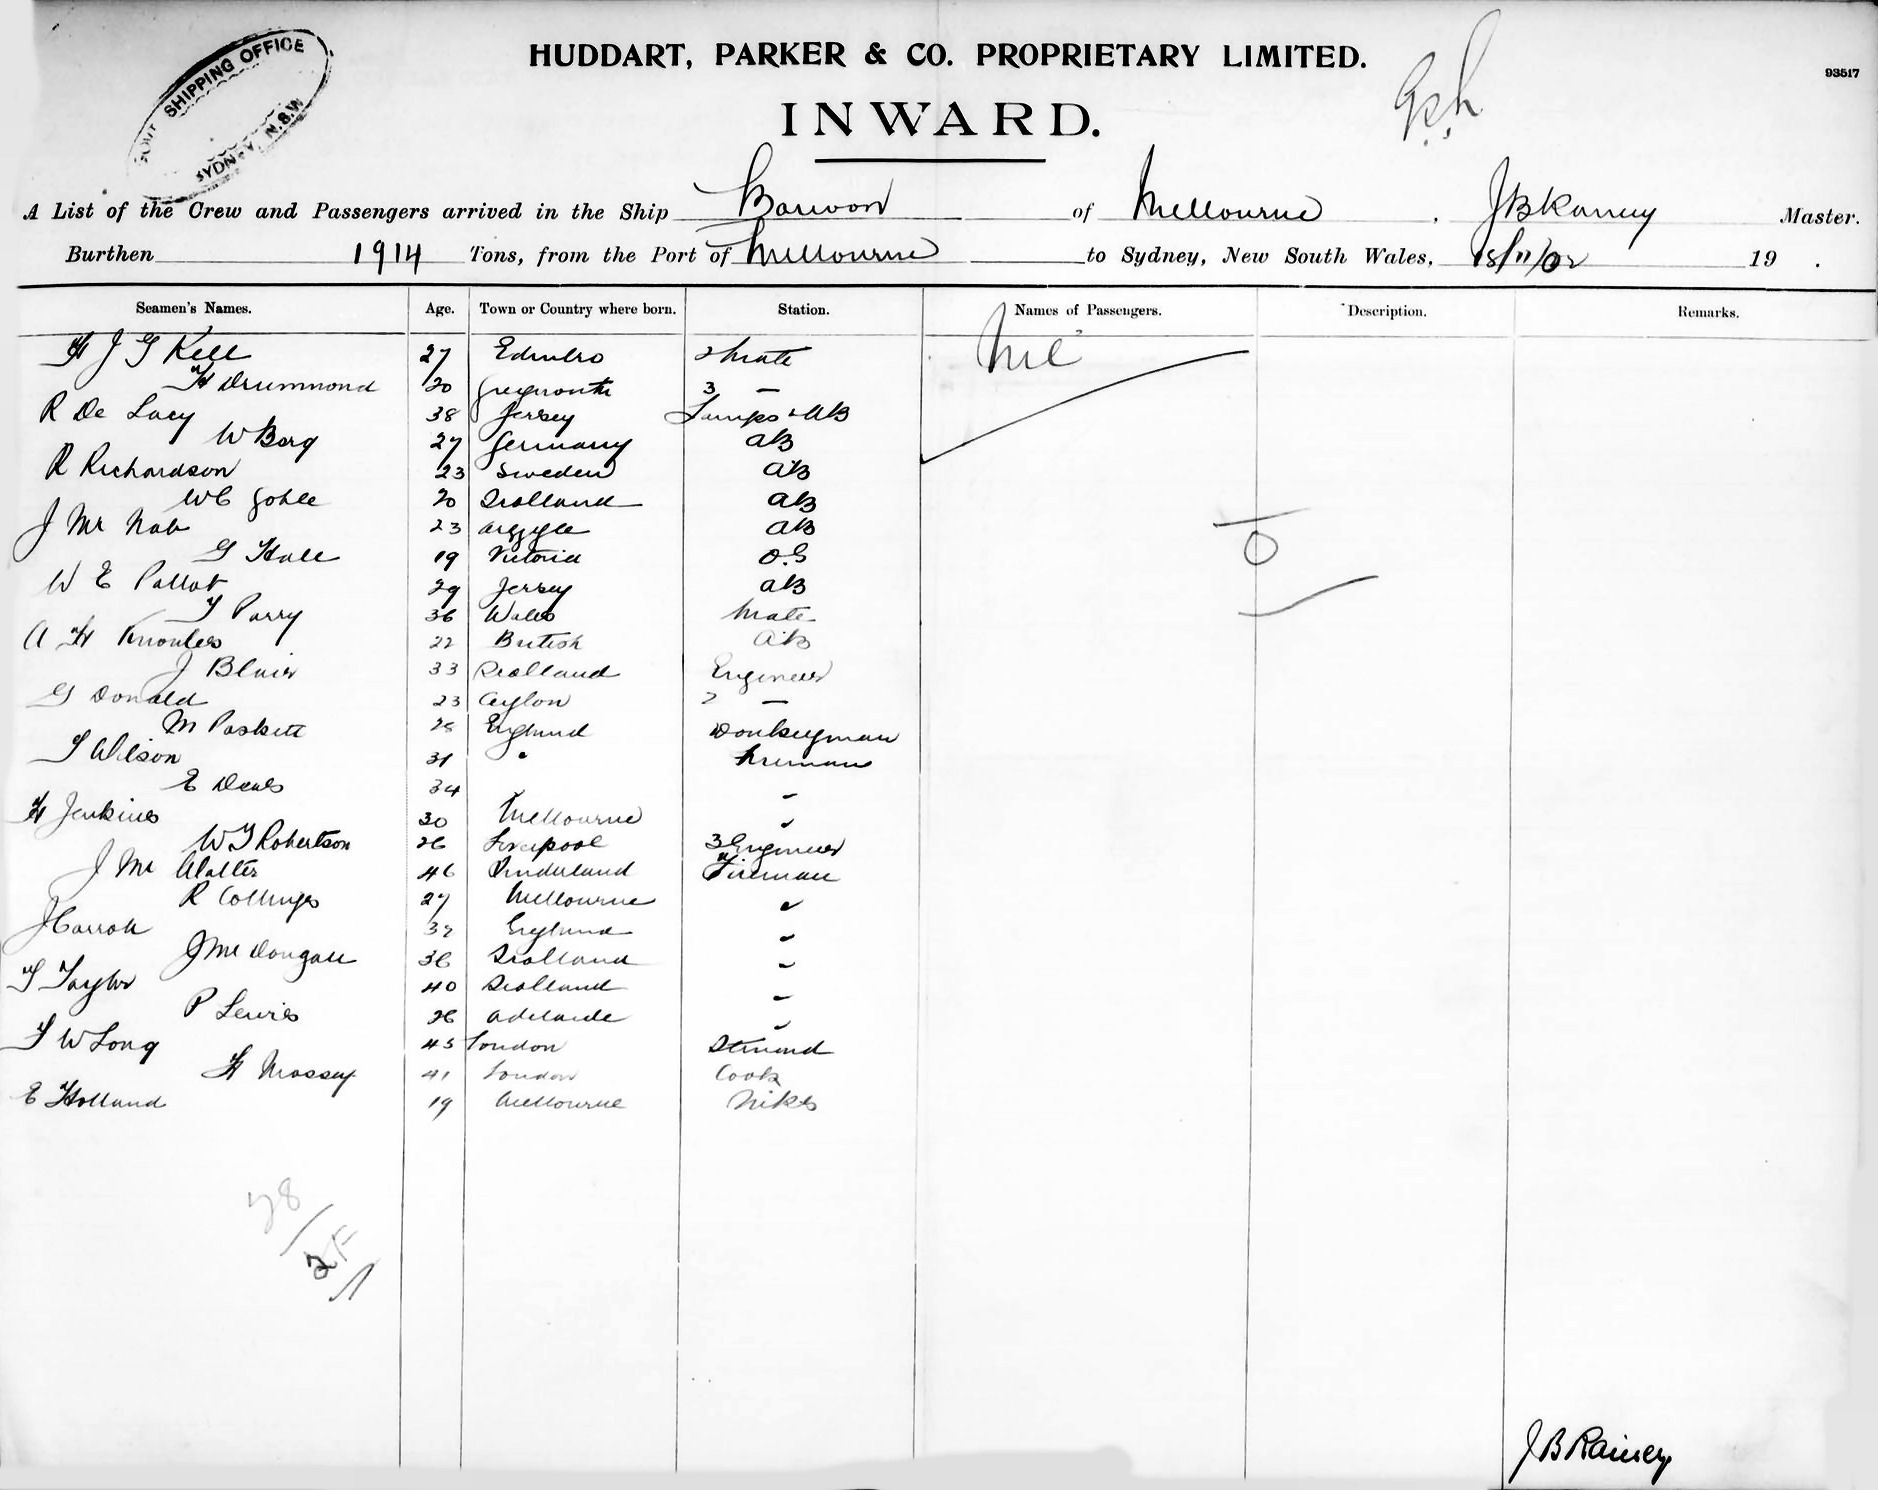 GOVT SHIPPING OFFICE
SYDNEY N.S.W
HUDDART, PARKER & CO. PROPRIETARY LIMITED.
93517
INWARD.
A List of the Crew and Passengers arrived in the Ship Barwon of Melbourne, J B Rainey Master.
Burthen 1914 Tons, from the Port of Melbourne to Sydney, New South Wales, 18/11/02 19 .
Seamen's Names. Age. Town or Country where born. Station. Names of Passengers. Description. Remarks.
H J G Kell 27 Edinbro 2 Mate Nil
H Drummond 20 Greymouth 3 —
R De Lacy 38 Jersey Lamps & AB
W Berg 27 Germany AB
R Richardson 23 Sweden AB
W C Goble 20 Scotland AB
J Mc Nab 23 Argyle AB
G Hall 19 Victoria O.S
W E Pallot 29 Jersey AB
T Parry 36 Wales Mate
A H Knowles 22 British AB
J Blair 33 Scotland Engineer
G Donald 23 Ceylon 2 —
M Paskett 28 England Donkeyman
T Wilson 31 " Fireman
E Deals 34 " "
H Jenkins 30 Melbourne "
W T Robertson 26 Liverpool 3 Engineer
J Mc Walter 46 Sunderland Fireman
R Collings 27 Melbourne "
J Carroll 37 England "
J McDougall 36 Scotland "
T Taylor 40 Scotland "
P Lewis 26 Adelaide "
F W Long 45 London Steward
H Massey 41 London Cook
E Holland 19 Melbourne
28
2F
J B Rainey